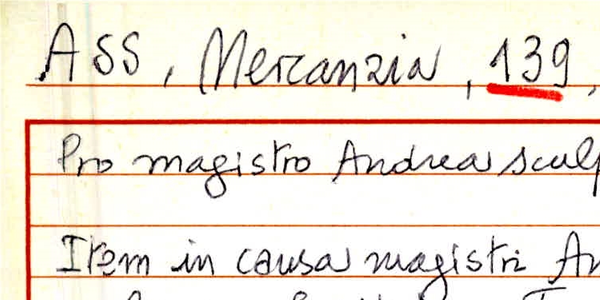 ASS, Mercanzia, 139,
Pro magistro Andrea sculp
Item in causa magistri An